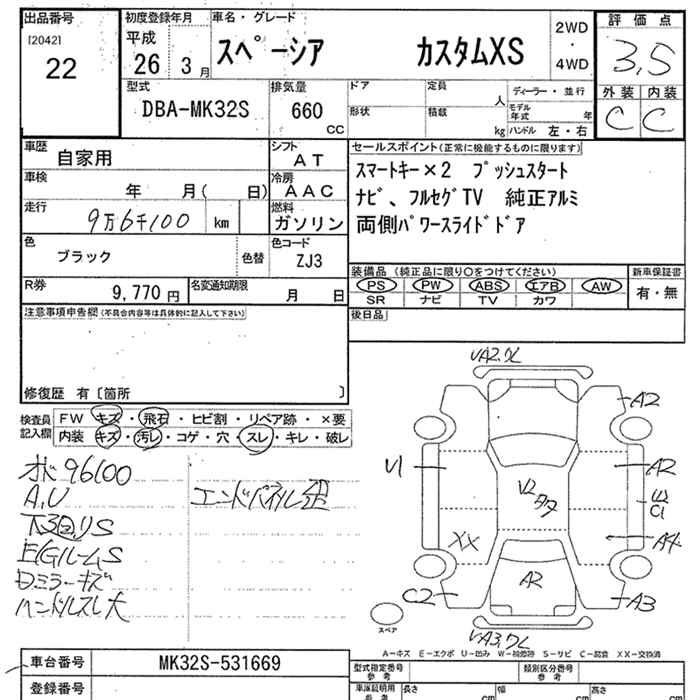 出品番号
[2042]
22
初度登録年月
平成
26 3月
車名・グレード
スペーシア カスタムXS
2WD
・
4WD
評価点
3.5
外装 内装
C C
型式
DBA-MK32S
排気量
660
CC
ドア
形状
定員
人
積載
kg
ディーラー・並行
モデル年式 年
ハンドル 左・右
車歴
自家用
シフト
AT
車検
年 月( 日)
冷房
AAC
走行
9万6千100 km
燃料
ガソリン
色
ブラック
色替
色コード
ZJ3
R券
9,770 円
名変通知期限
月 日
セールスポイント(正常に機能するものに限ります)
スマートキー×2 プッシュスタート
ナビ、フルセグTV 純正アルミ
両側パワースライドドア
装備品 (純正品に限り○をつけてください)
PS PW ABS エアB AW
SR ナビ TV カワ
新車保証書
有・無
後日品
注意事項申告欄(不具合内容等は具体的に記入して下さい)
修復歴 有〔箇所 〕
検査員
記入欄
FW キズ・飛石・ヒビ割・リペア跡・×要
内装 キズ・汚レ・コゲ・穴・スレ・キレ・破レ
オド96100
A,U
下回リS
EGルームS
Dミラーキズ
ハンドルスレ大
VA2.ワレ
A2
U1
A2
U2
C1
XX
A4
C2
A2
A3
VA3.ワレ
スペア
A−キズ E−エクボ U−凹み W−補修跡 S−サビ C−腐食 XX−交換済
車台番号
MK32S-531669
登録番号
型式指定番号
参考
類別区分番号
参考
車庫証明用
参考
長さ cm
幅 cm
高さ cm